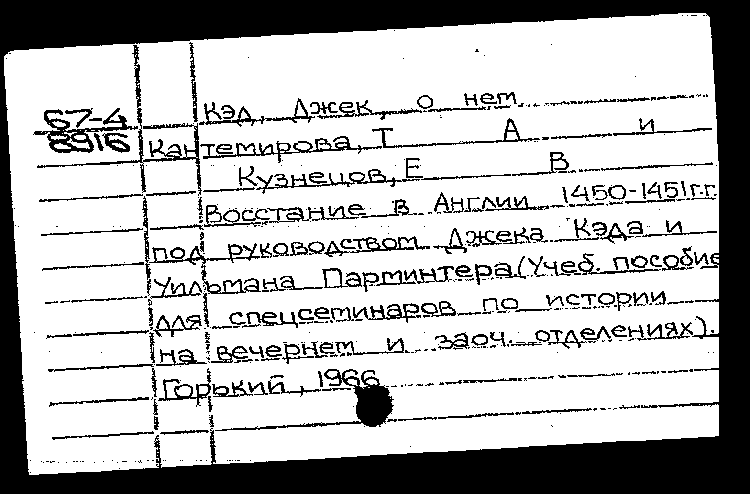 Кэд, Джек, о нем
67-4
8916
Кантемирова, Т А и
Кузнецов, Е В
Восстание в Англии 1450-1451г.г.
под руководством Джека Кэда и
Уильмана Парминтера (Учеб. пособие
для спецсеминаров по истории
на вечернем и заоч. отделениях).
Горький, 1966